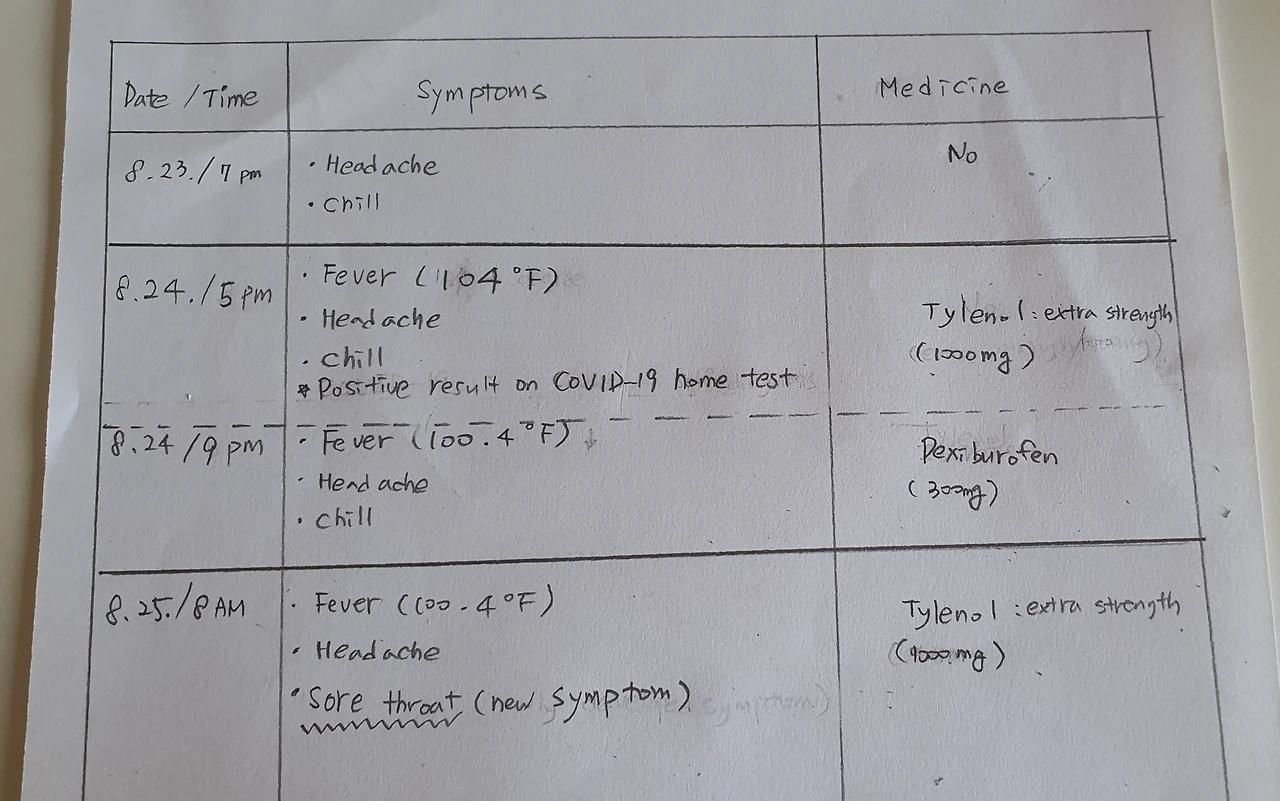 Date / Time Symptoms Medicine
8.23. / 7 pm · Headache No
· Chill
8.24. / 5 pm · Fever (104 °F) Tylenol : extra strength
· Headache (1000mg)
· Chill
* Positive result on COVID-19 home test
8.24 / 9 pm · Fever (100.4 °F) ↓ Dexiburofen
· Headache (300mg)
· Chill
8.25. / 8 AM · Fever (100.4 °F) Tylenol : extra strength
· Headache (1000mg)
· Sore throat (new symptom)